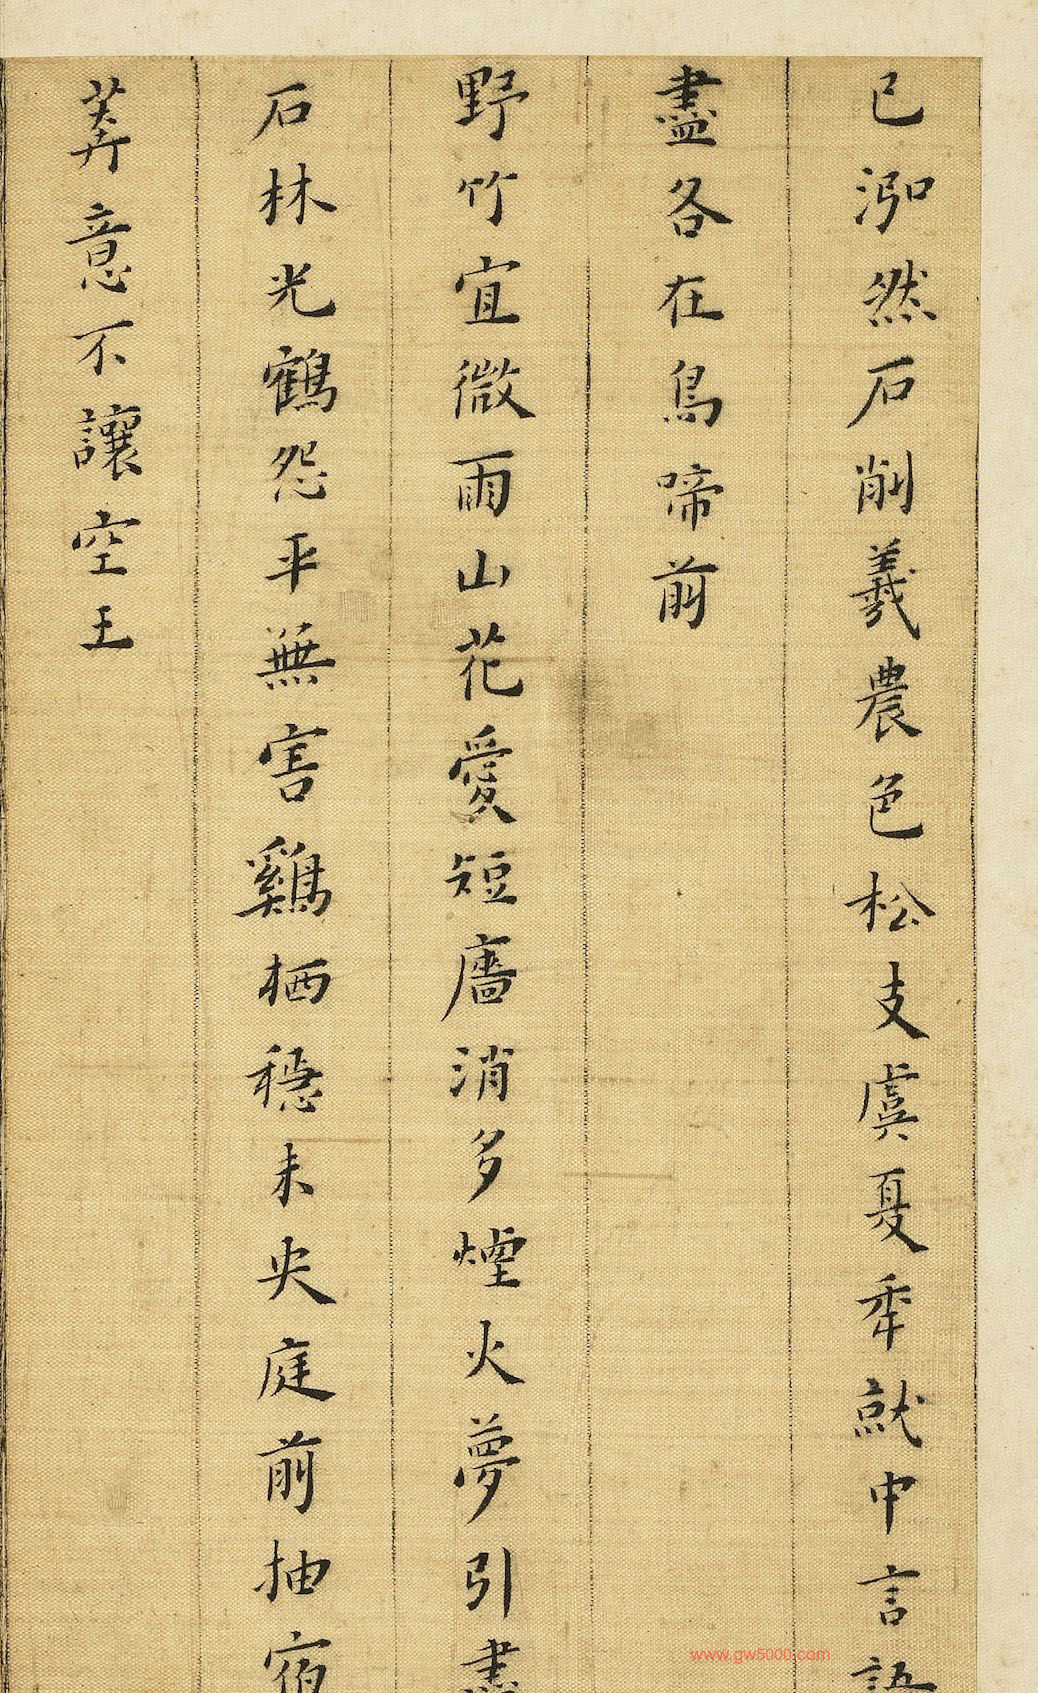 已泓然石削羲農色松支虞夏秊就中言語
盡各在鳥啼前
野竹宜微雨山花愛短廧消多煙火夢引書
石林光鶴怨平無害鷄栖穏未央庭前抽宿
莽意不讓空王
www.gw5000.com